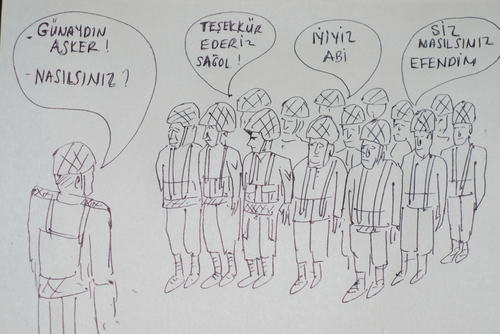 - GÜNAYDIN
ASKER !
- NASILSINIZ ?
TEŞEKKÜR
EDERİZ
SAĞOL !
İYİYİZ
ABİ
SİZ
NASILSINIZ
EFENDİM